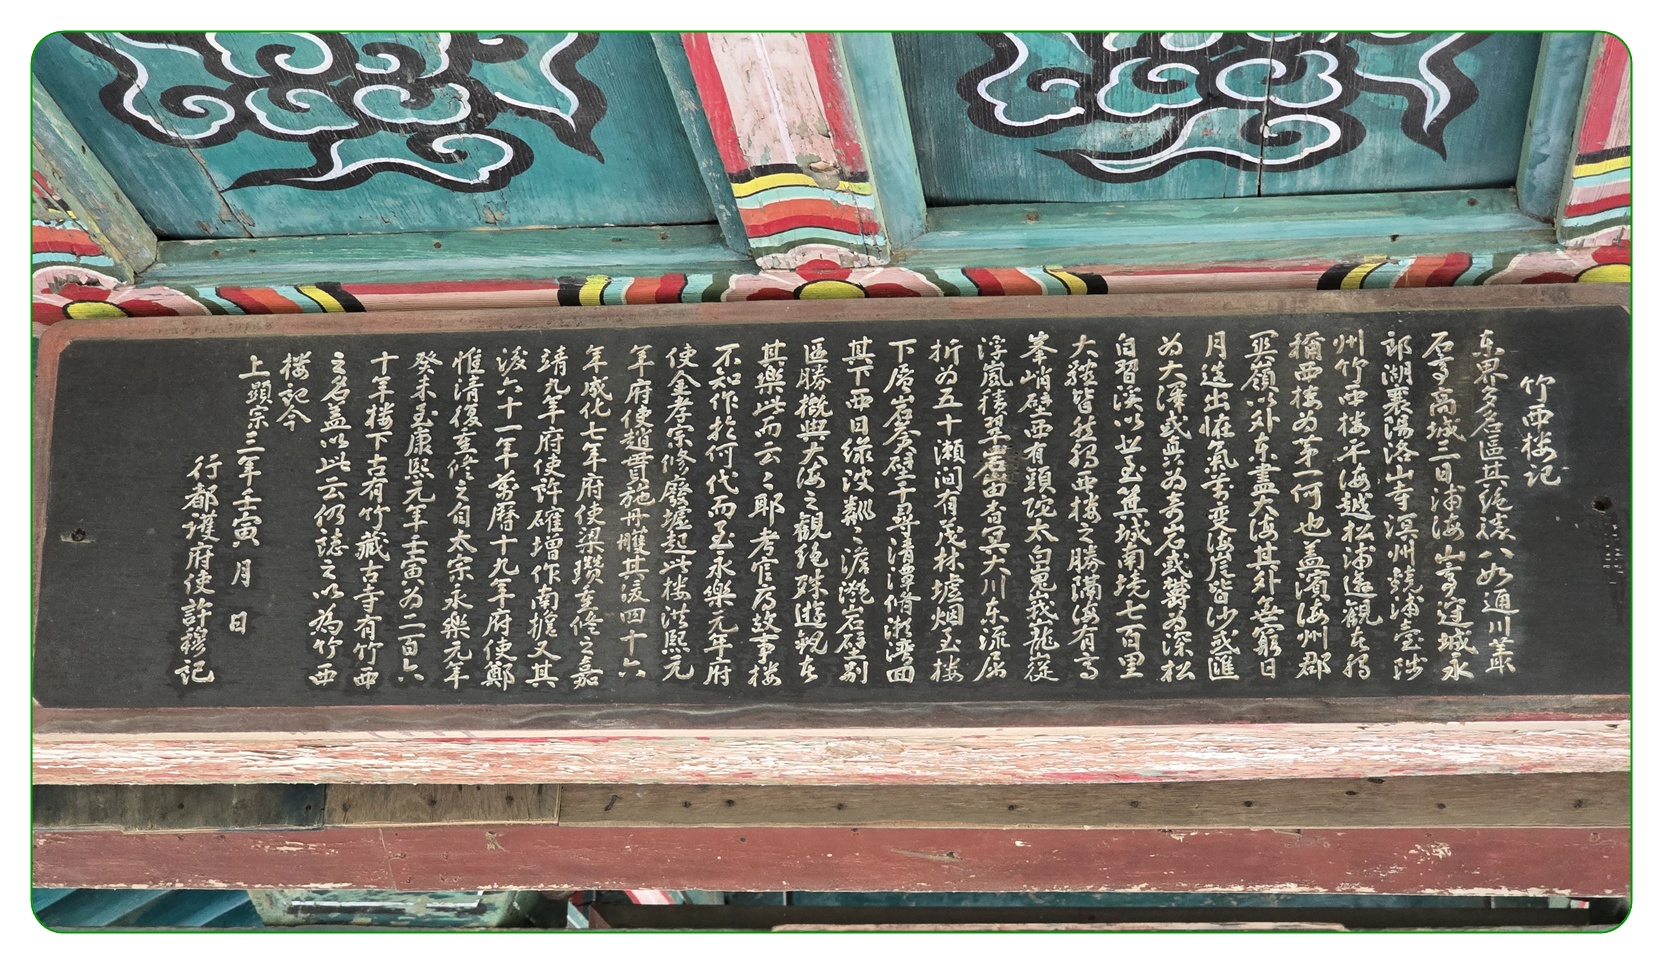 竹西樓記
东界多名區其絶勝八如通川叢
石亭高城三日浦海山亭䢘城永
郎湖襄陽洛山寺溟州鏡浦臺陟
州竹西楼不海越松浦遠觀者獨
稱西楼為第一何也盖濱海州郡
関嶺以外东盡大海其外無窮日
月迭出怪氣萬变海岸皆沙或匯
為大澤或矗為奇石或欝為深松
自習溪以北至箕城南境七百里
大體皆然獨西楼之勝隔海有高
峯峭壁西有頭陀太白嵬峩巃嵷
浮嵐積翠岩岫杳冥大川东流屈
折为五十瀬间有茂林墟烟至楼
下层岩蒼壁千尋清潭脩瀬瀯洄
其下西日綠波粼〻澹灔岩壁别
區勝概與大海之觀絶殊遊觀者
其樂此而云〻耶考官府故事楼
不知作於何代而至永樂元年府
使金孝宗修廢墟起此楼洪熙元
年府使趙貫施丹雘其後四十六
年成化七年府使梁瓚重修之嘉
靖九年府使許確增作南簷又其
後六十一年萬曆十九年府使鄭
惟清復重修之自太宗永樂元年
癸未至康熙元年壬寅为二百六
十年楼下古有竹藏古寺有竹西
之名盖以此云仍誌之以為竹西
楼記今
上顯宗三年壬寅 月 日
行都護府使許穆記